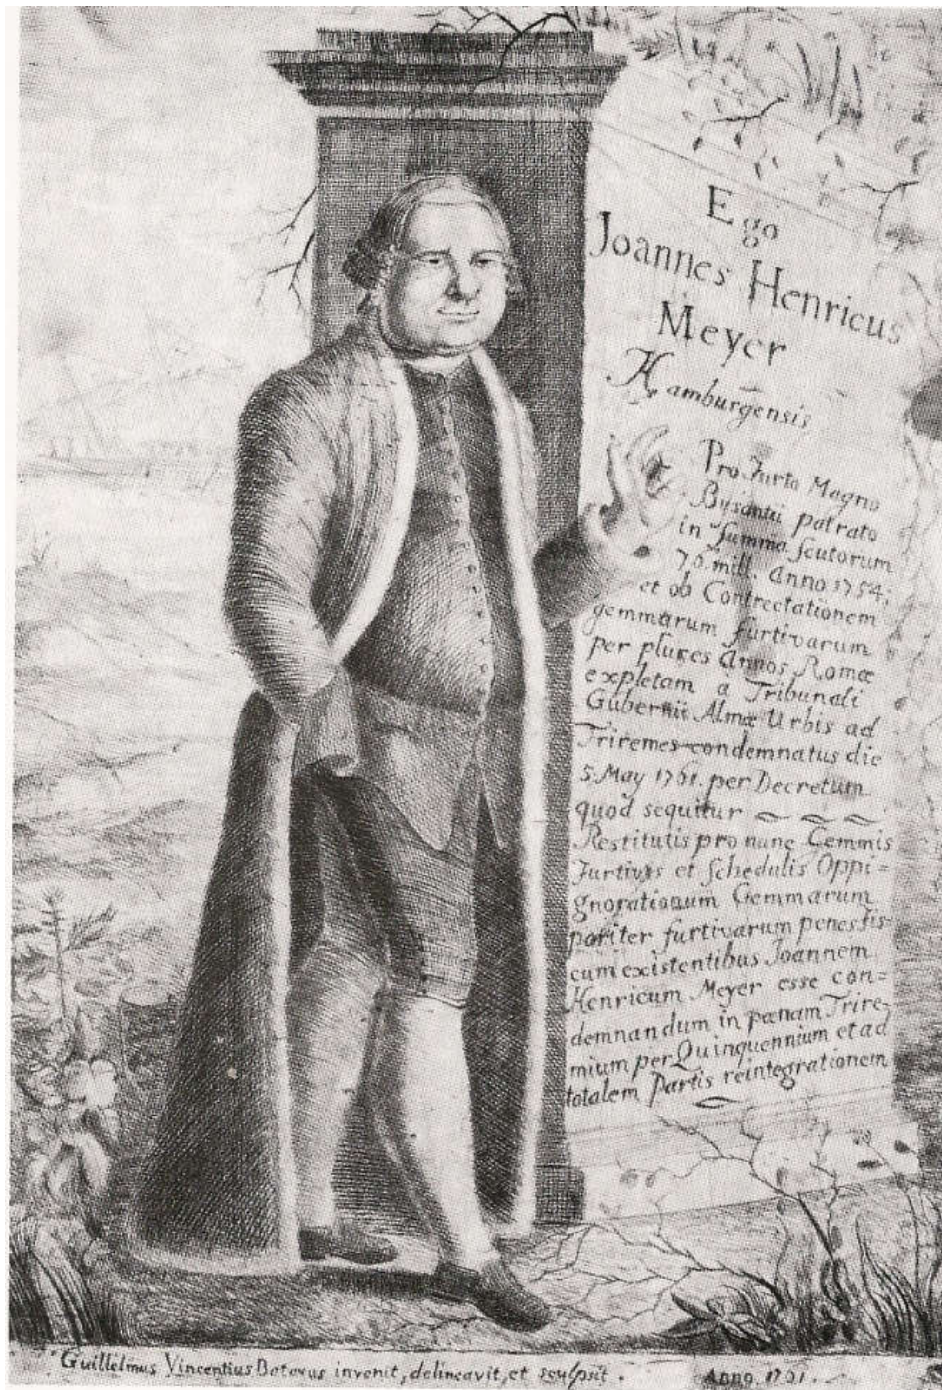 Ego
Joannes Henricus
Meyer
Hamburgensis
Pro Furto Magno
Bysantii patrato
in Summa scutorum
70 mill. Anno 1754;
et ob Contrectationem
gemmarum furtivarum
per plures Annos Romæ
expletam a Tribunali
Gubernii Almæ Urbis ad
Triremes condemnatus die
5 May 1761. per Decretum
quod sequitur
Restitutis pro nunc Gemmis
Furtivis et Schedulis Oppi=
gnorationum Gemmarum
pariter furtivarum penes fis-
cum existentibus Joannem
Henricum Meyer esse con=
demnandum in pœnam Trire-
mium per Quinquennium et ad
totalem Partis reintegrationem
Guillelmus Vincentius Batavus invenit, delineavit, et sculpsit. Anno